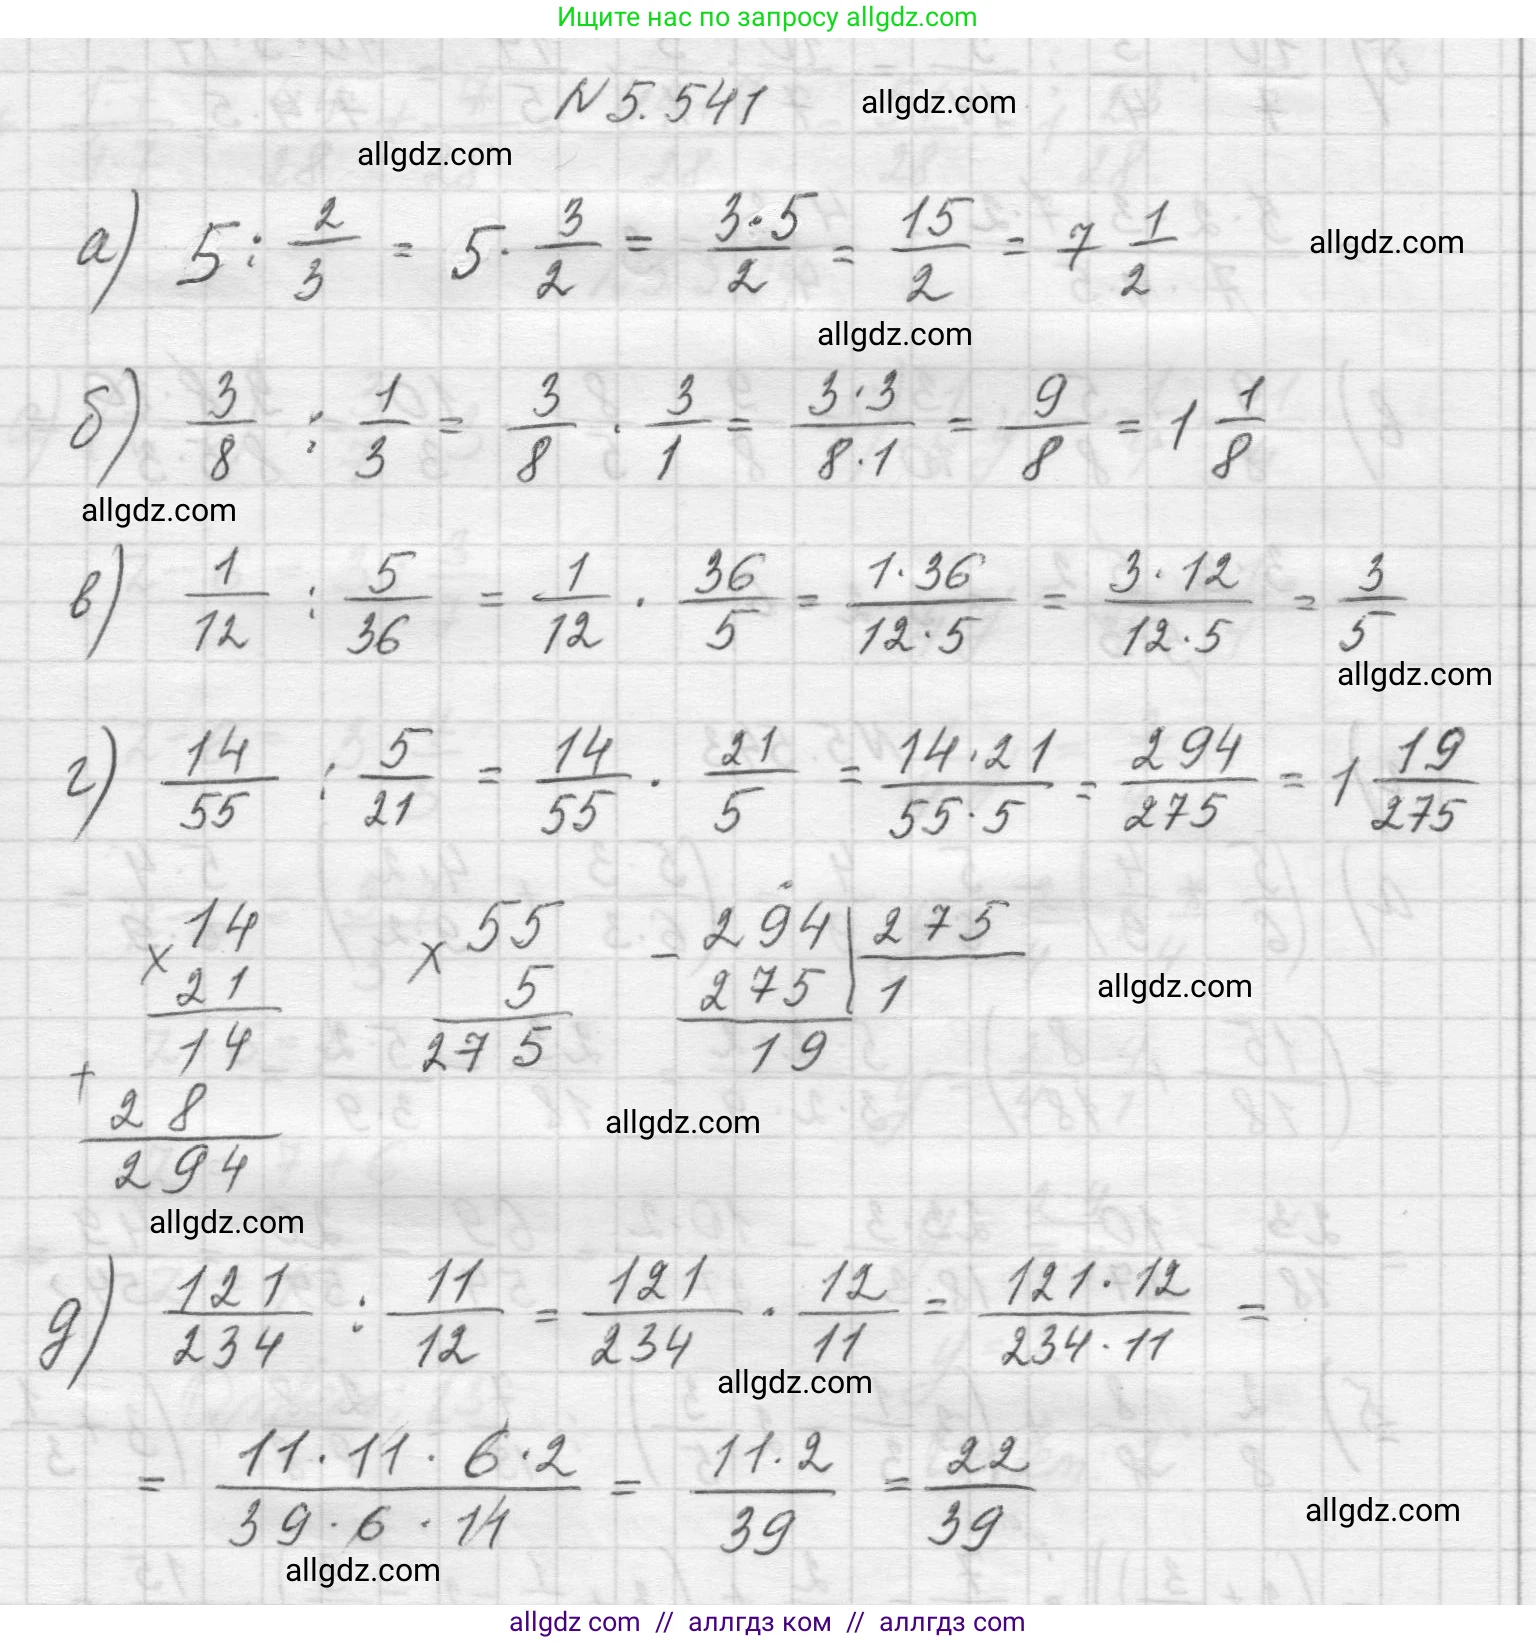 Ищите нас по запросу allgdz.com
N 5.541 allgdz.com
allgdz.com
а) 5 : 2/3 = 5 · 3/2 = 3·5/2 = 15/2 = 7 1/2 allgdz.com
allgdz.com
б) 3/8 : 1/3 = 3/8 · 3/1 = 3·3/8·1 = 9/8 = 1 1/8
allgdz.com
в) 1/12 : 5/36 = 1/12 · 36/5 = 1·36/12·5 = 3·12/12·5 = 3/5
allgdz.com
г) 14/55 : 5/21 = 14/55 · 21/5 = 14·21/55·5 = 294/275 = 1 19/275
14 55 294 | 275
× 21 × 5 − 275 | 1 allgdz.com
14 275 19
+ 28 allgdz.com
294
allgdz.com
д) 121/234 : 11/12 = 121/234 · 12/11 = 121·12/234·11 =
allgdz.com
= 11·11·6·2/39·6·11 = 11·2/39 = 22/39 allgdz.com
allgdz.com
allgdz com // аллгдз ком // аллгдз com